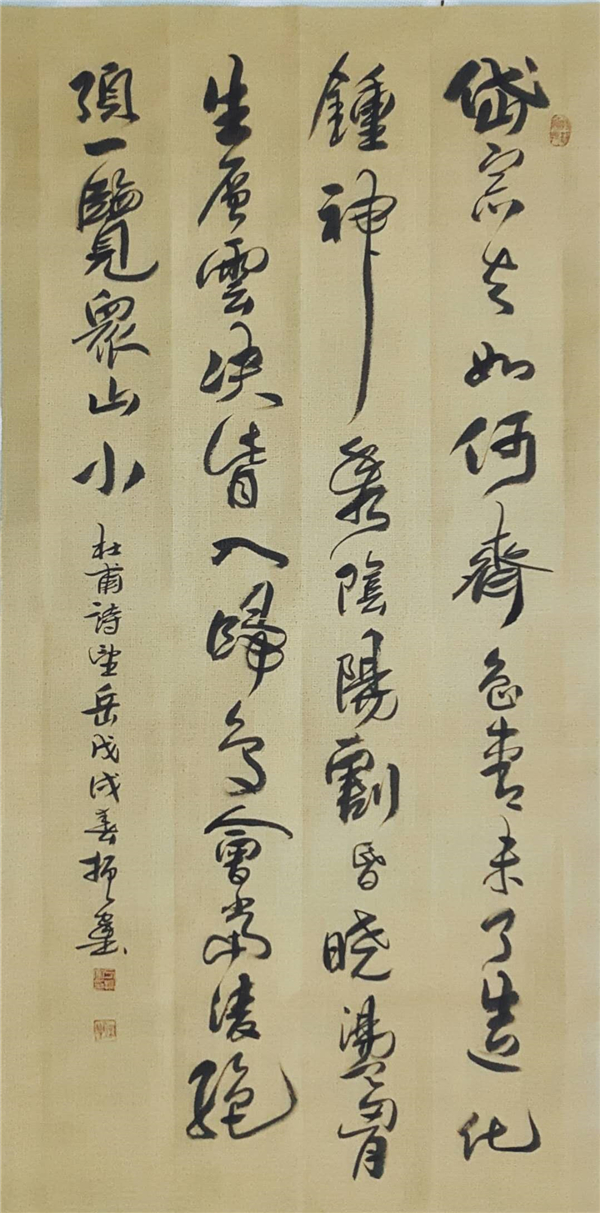 岱宗夫如何齊魯青未了造化
鍾神秀陰陽割昏曉盪胷
生層雲決眥入歸鳥會當凌絕
頂一覽眾山小
杜甫詩望岳戊戌春